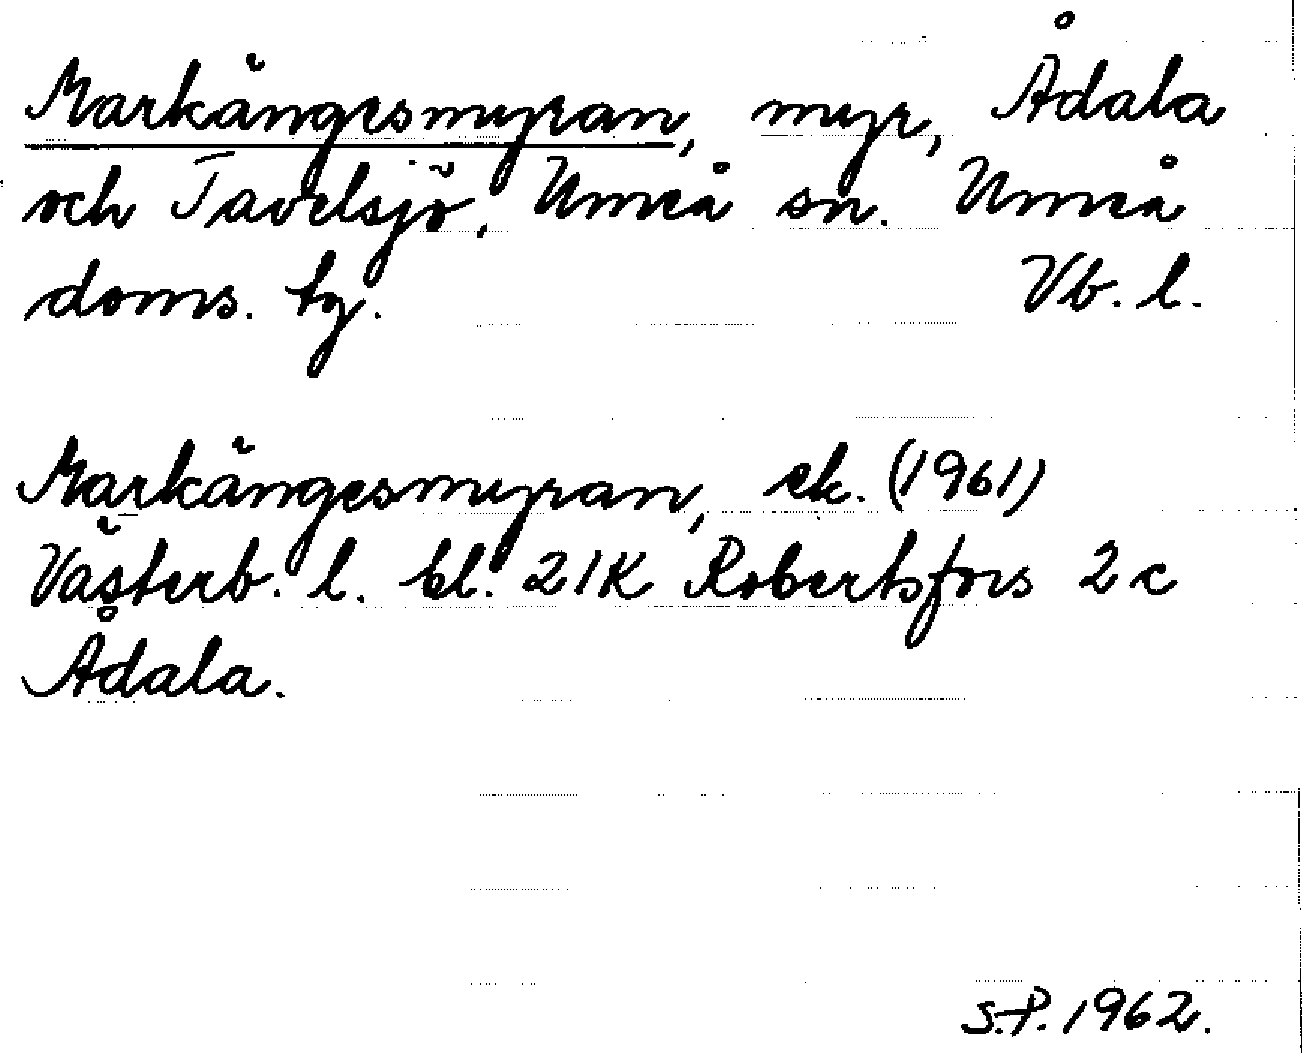 Markängesmyran, myr, Ådala
och Tavelsjö, Umeå sn. Umeå
doms. tg. Vb. l.
Markängesmyran, ek. (1961)
Västerb. l. bl. 21K Robertsfors 2c
Ådala.
S.P. 1962.